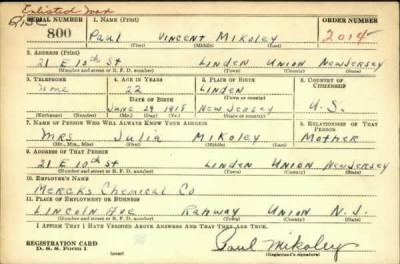 Enlisted man
Disc
SERIAL NUMBER 1. NAME (Print) ORDER NUMBER
800 Paul Vincent Mikoley 2014
(First) (Middle) (Last)
2. ADDRESS (Print)
21 E 10th St Linden Union New Jersey
(Number and street or R. F. D. number) (Town) (County) (State)
3. TELEPHONE 4. AGE IN YEARS 5. PLACE OF BIRTH 6. COUNTRY OF CITIZENSHIP
None 22 Linden
DATE OF BIRTH (Town or county)
June 29 1918 New Jersey U.S.
(Mo.) (Day) (Yr.) (State or country)
7. NAME OF PERSON WHO WILL ALWAYS KNOW YOUR ADDRESS 8. RELATIONSHIP OF THAT PERSON
Mrs Julia Mikoley Mother
(Mr., Mrs., Miss) (First) (Middle) (Last)
9. ADDRESS OF THAT PERSON
21 E 10th St Linden Union New Jersey
(Number and street or R. F. D. number) (Town) (County) (State)
10. EMPLOYER'S NAME
Mercks Chemical Co
11. PLACE OF EMPLOYMENT OR BUSINESS
Lincoln Ave Rahway Union N.J.
(Number and street or R. F. D. number) (Town) (County) (State)
I AFFIRM THAT I HAVE VERIFIED ABOVE ANSWERS AND THAT THEY ARE TRUE.
REGISTRATION CARD
D. S. S. Form 1 (over) Paul Mikoley
(Registrant's signature)